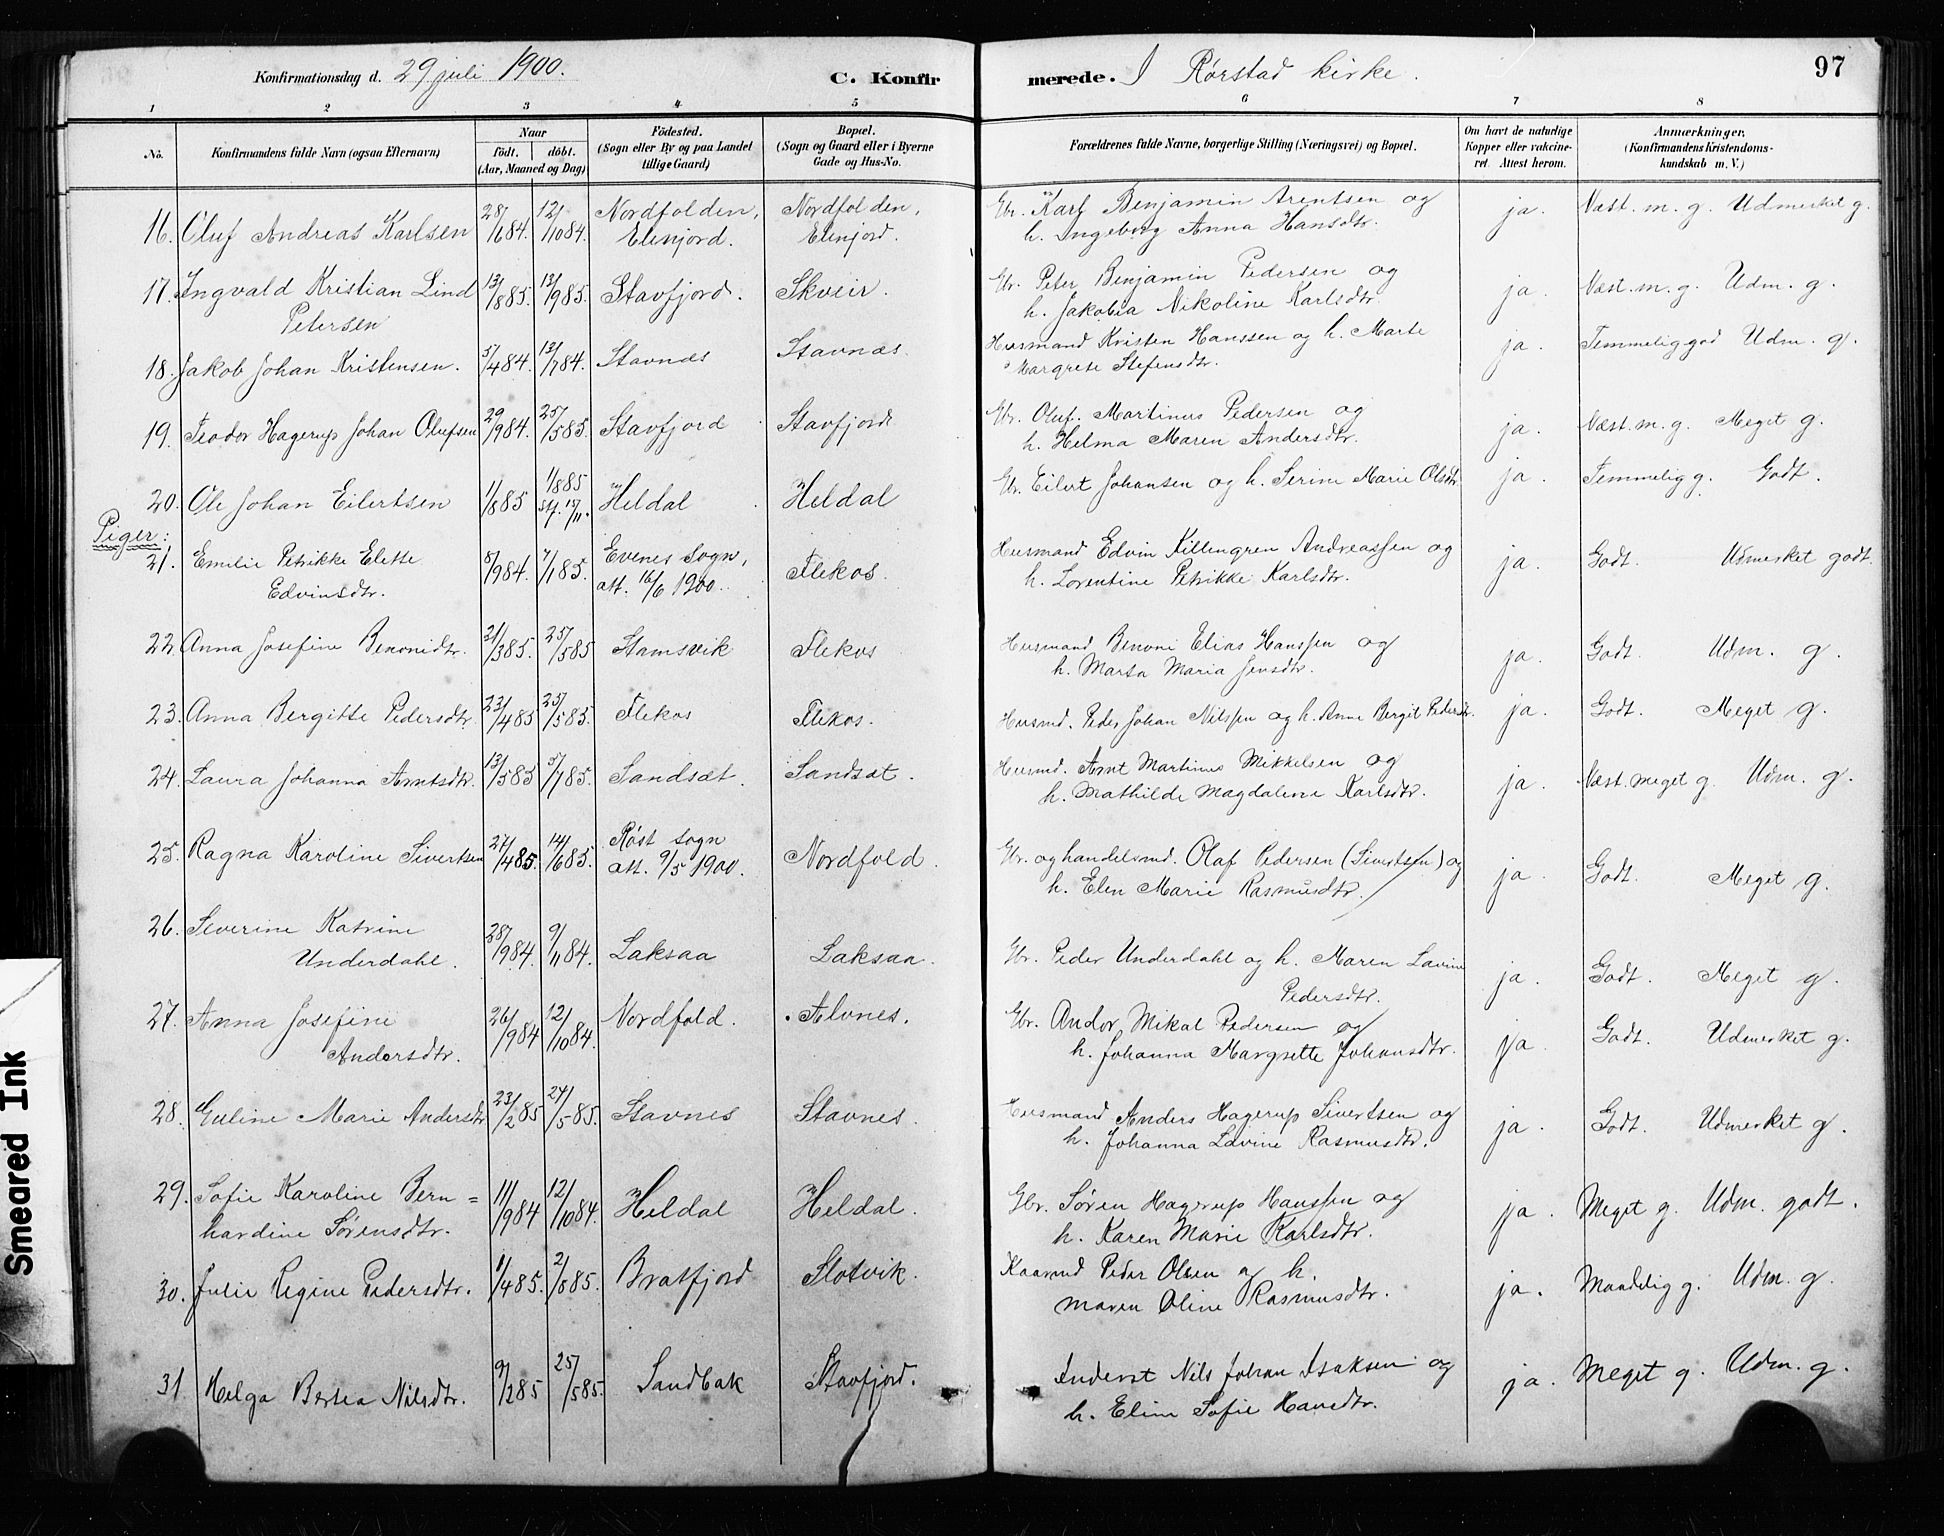 Konfirmationsdag d. 29 juli 1900.
C. Konfirmerede. I Rørstad kirke.
97
1 2 3 4 5 6 7 8
No.
Konfirmandens fulde Navn (ogsaa Efternavn)
Naar
født. døbt.
(Aar, Maaned og Dag)
Fødested.
(Sogn eller By og paa Landet
tillige Gaard)
Bopæl.
(Sogn og Gaard eller i Byerne
Gade og Hus-No.
Forældrenes fulde Navne, borgerlige Stilling (Næringsvei) og Bopæl.
Om havt de naturlige
Kopper eller vakcine-
ret. Attest herom.
Anmærkninger.
(Konfirmandens Kristendoms-
kundskab m. V.)
16. Oluf Andreas Karlsen 28/684. 12/1084. Nordfolden, Elenjord. Nordfolden, Elenjord. Gbr. Karl Benjamin Arentsen og
h. Ingeborg Anna Hansdtr. ja. Næst. m. g. Udmerket g.
17. Ingvald Kristian Lind
Petersen 13/885. 13/985. Stavfjord. Skveir. Gbr. Peter Benjamin Pedersen og
h. Jakobia Nikoline Karlsdtr. ja. Næst. m. g. Udm. g.
18. Jakob Johan Kristensen. 5/484. 13/784. Stavnæs Stavnæs. Husmand Kristen Hanssen og h. Marte
Margrete Stefensdtr. ja. Temmelig god Udm. g.
19. Teodor Hagerup Johan Olufsen 29/984. 25/585. Stavfjord Stavfjord Gbr. Oluf Martinus Pedersen og
h. Helma Maren Andersdtr. ja. Næst. m. g. Meget g.
20. Ole Johan Eilertsen 1/885 1/885 Heldal Heldal Gbr. Eilert Johansen og h. Serine Marie Olsdtr. ja. Temmelig g. Godt.
Piger:
21. Emilie Petrikke Elette
Edvinsdtr. 8/984. 7/185. Evenes Sogn,
att. 16/6 1900. Flekos. Husmand Edvin Killengren Andreassen og
h. Lorentine Petrikke Karlsdtr. ja. Godt. Udmerket godt.
22. Anna Josefine Benonidtr. 21/385. 25/585 Stamsvik Flekos Husmand Benoni Elias Hanssen og
h. Marta Maria Jensdtr. ja. Godt. Udm. g.
23. Anna Bergitte Pedersdtr. 23/485 25/585. Flekos Flekos. Husmd. Peder Johan Nilssen og h. Anne Bergit Pedersdtr. ja. Godt. Meget g.
24. Laura Johanna Arntsdtr. 13/585 5/785. Sandsæt. Sandsæt. Husmd. Arnt Martinus Mikkelsen og
h. Mathilde Magdalena Karlsdtr. ja. Næst. meget g. Udm. g.
25. Ragna Karoline Sivertsen 27/485. 14/685. Røst sogn
att. 9/5 1900. Nordfold. Gbr. og handelsmd. Olaf Pedersen (Sivertsen) og
h. Elen Marie Rasmusdtr. ja. Godt. Meget g.
26. Severine Katrine
Underdahl. 28/984. 9/1184. Laksaa Laksaa. Gbr. Peder Underdahl og h. Maren Lavine
Pedersdtr. ja. Godt. Meget g.
27. Anna Josefine
Andersdtr. 26/984 12/1084. Nordfold. Alvnes. Gbr. Andor Mikal Pedersen og
h. Johanna Margrette Johansdtr. ja. Godt. Udmerket g.
28. Guline Marie Andersdtr 23/285 24/585. Stavnes Stavnes. Husmand Anders Hagerup Sivertsen og
h. Johanna Lavine Rasmusdtr. ja. Godt. Udmerket g.
29. Sofie Karoline Bern=
hardine Sørensdtr. 11/984 12/1084. Heldal Heldal. Gbr. Søren Hagerup Hanssen og
h. Karen Marie Karlsdtr. ja. Meget g. Udm. godt.
30. Julie Regine Pedersdtr. 1/485. 2/885. Bratfjord Slotvik. Kaarmd Peder Olsen og h.
Maren Oline Rasmusdtr. ja. Maadelig g. Udm. g.
31 Helga Bertea Nilsdtr. 9/285 25/585. Sandbak Stavfjord. Inderst Nils Johan Isaksen og
h. Eline Sofie Hansdtr. ja. Meget g. Udm. g.
Smeared Ink